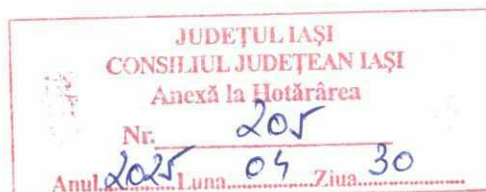 JUDEȚUL IAȘI
CONSILIUL JUDEȚEAN IAȘI
Anexă la Hotărârea
Nr. 205
Anul 2025 Luna 04 Ziua 30